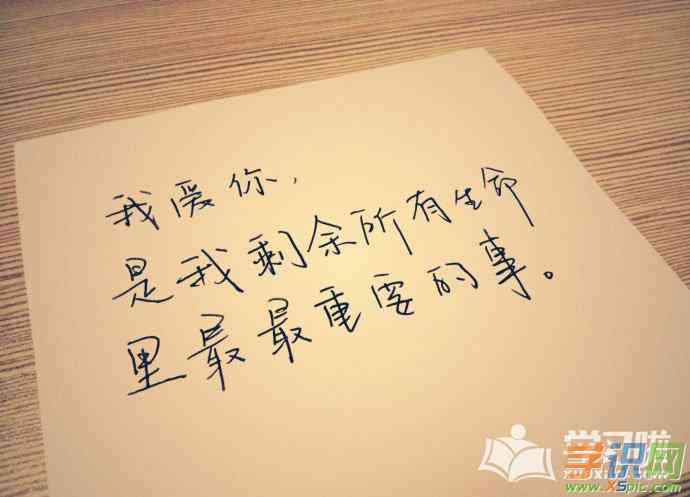 我爱你，
是我剩余所有生命
里最最重要的事。
学习啦
学识网
www.XSpic.com